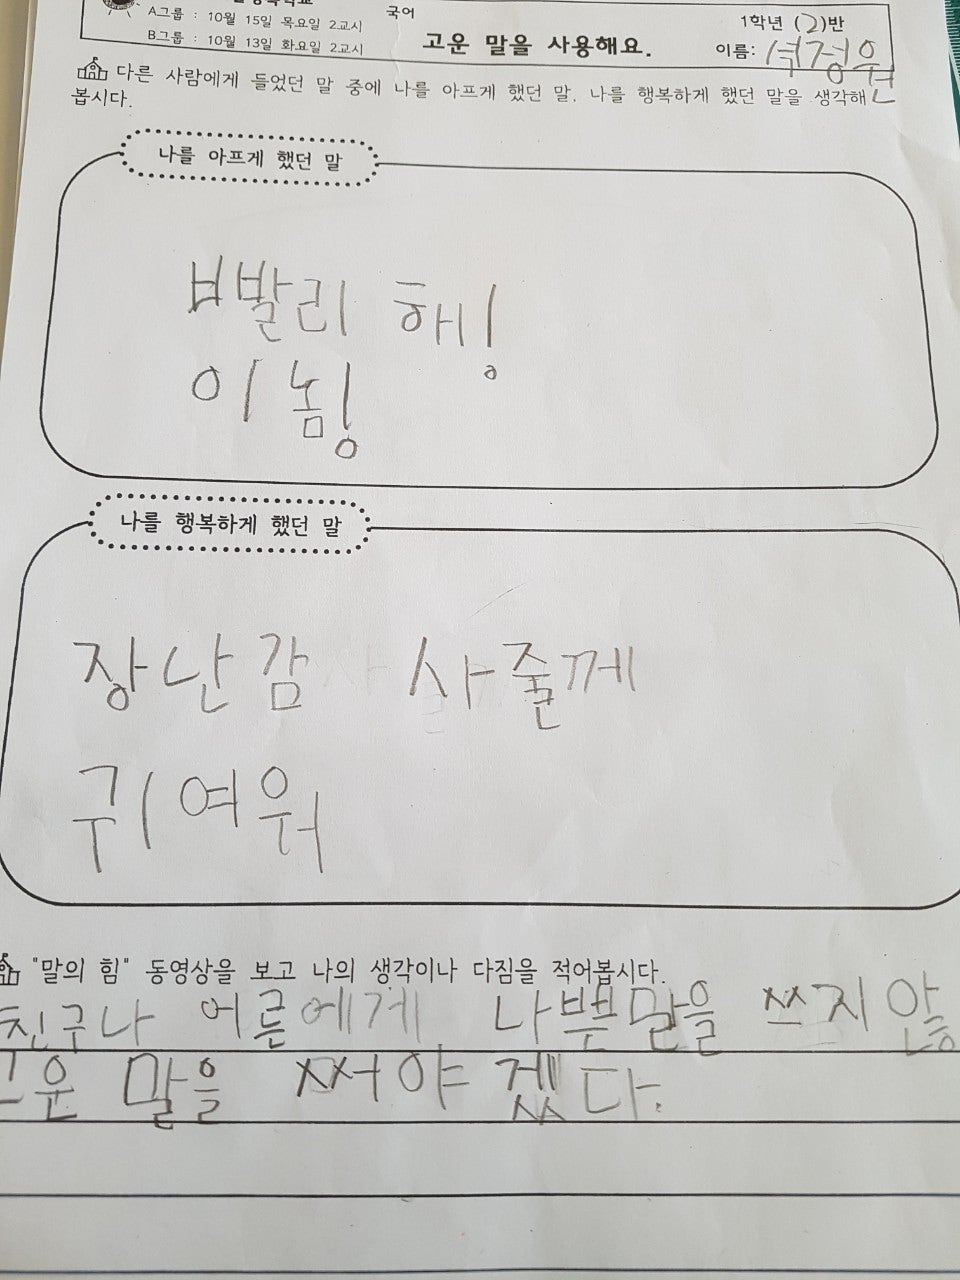 A그룹 : 10월 15일 목요일 2교시
B그룹 : 10월 13일 화요일 2교시
국어
고운 말을 사용해요.
1학년 (2)반
이름: 석정원
다른 사람에게 들었던 말 중에 나를 아프게 했던 말, 나를 행복하게 했던 말을 생각해
봅시다.
나를 아프게 했던 말
빨리 해잉
이 놈잉
나를 행복하게 했던 말
장난감 사줄께
귀여워
"말의 힘" 동영상을 보고 나의 생각이나 다짐을 적어봅시다.
친구나 어른에게 나뿐말을 쓰지 않
고운 말을 써야 겠다.